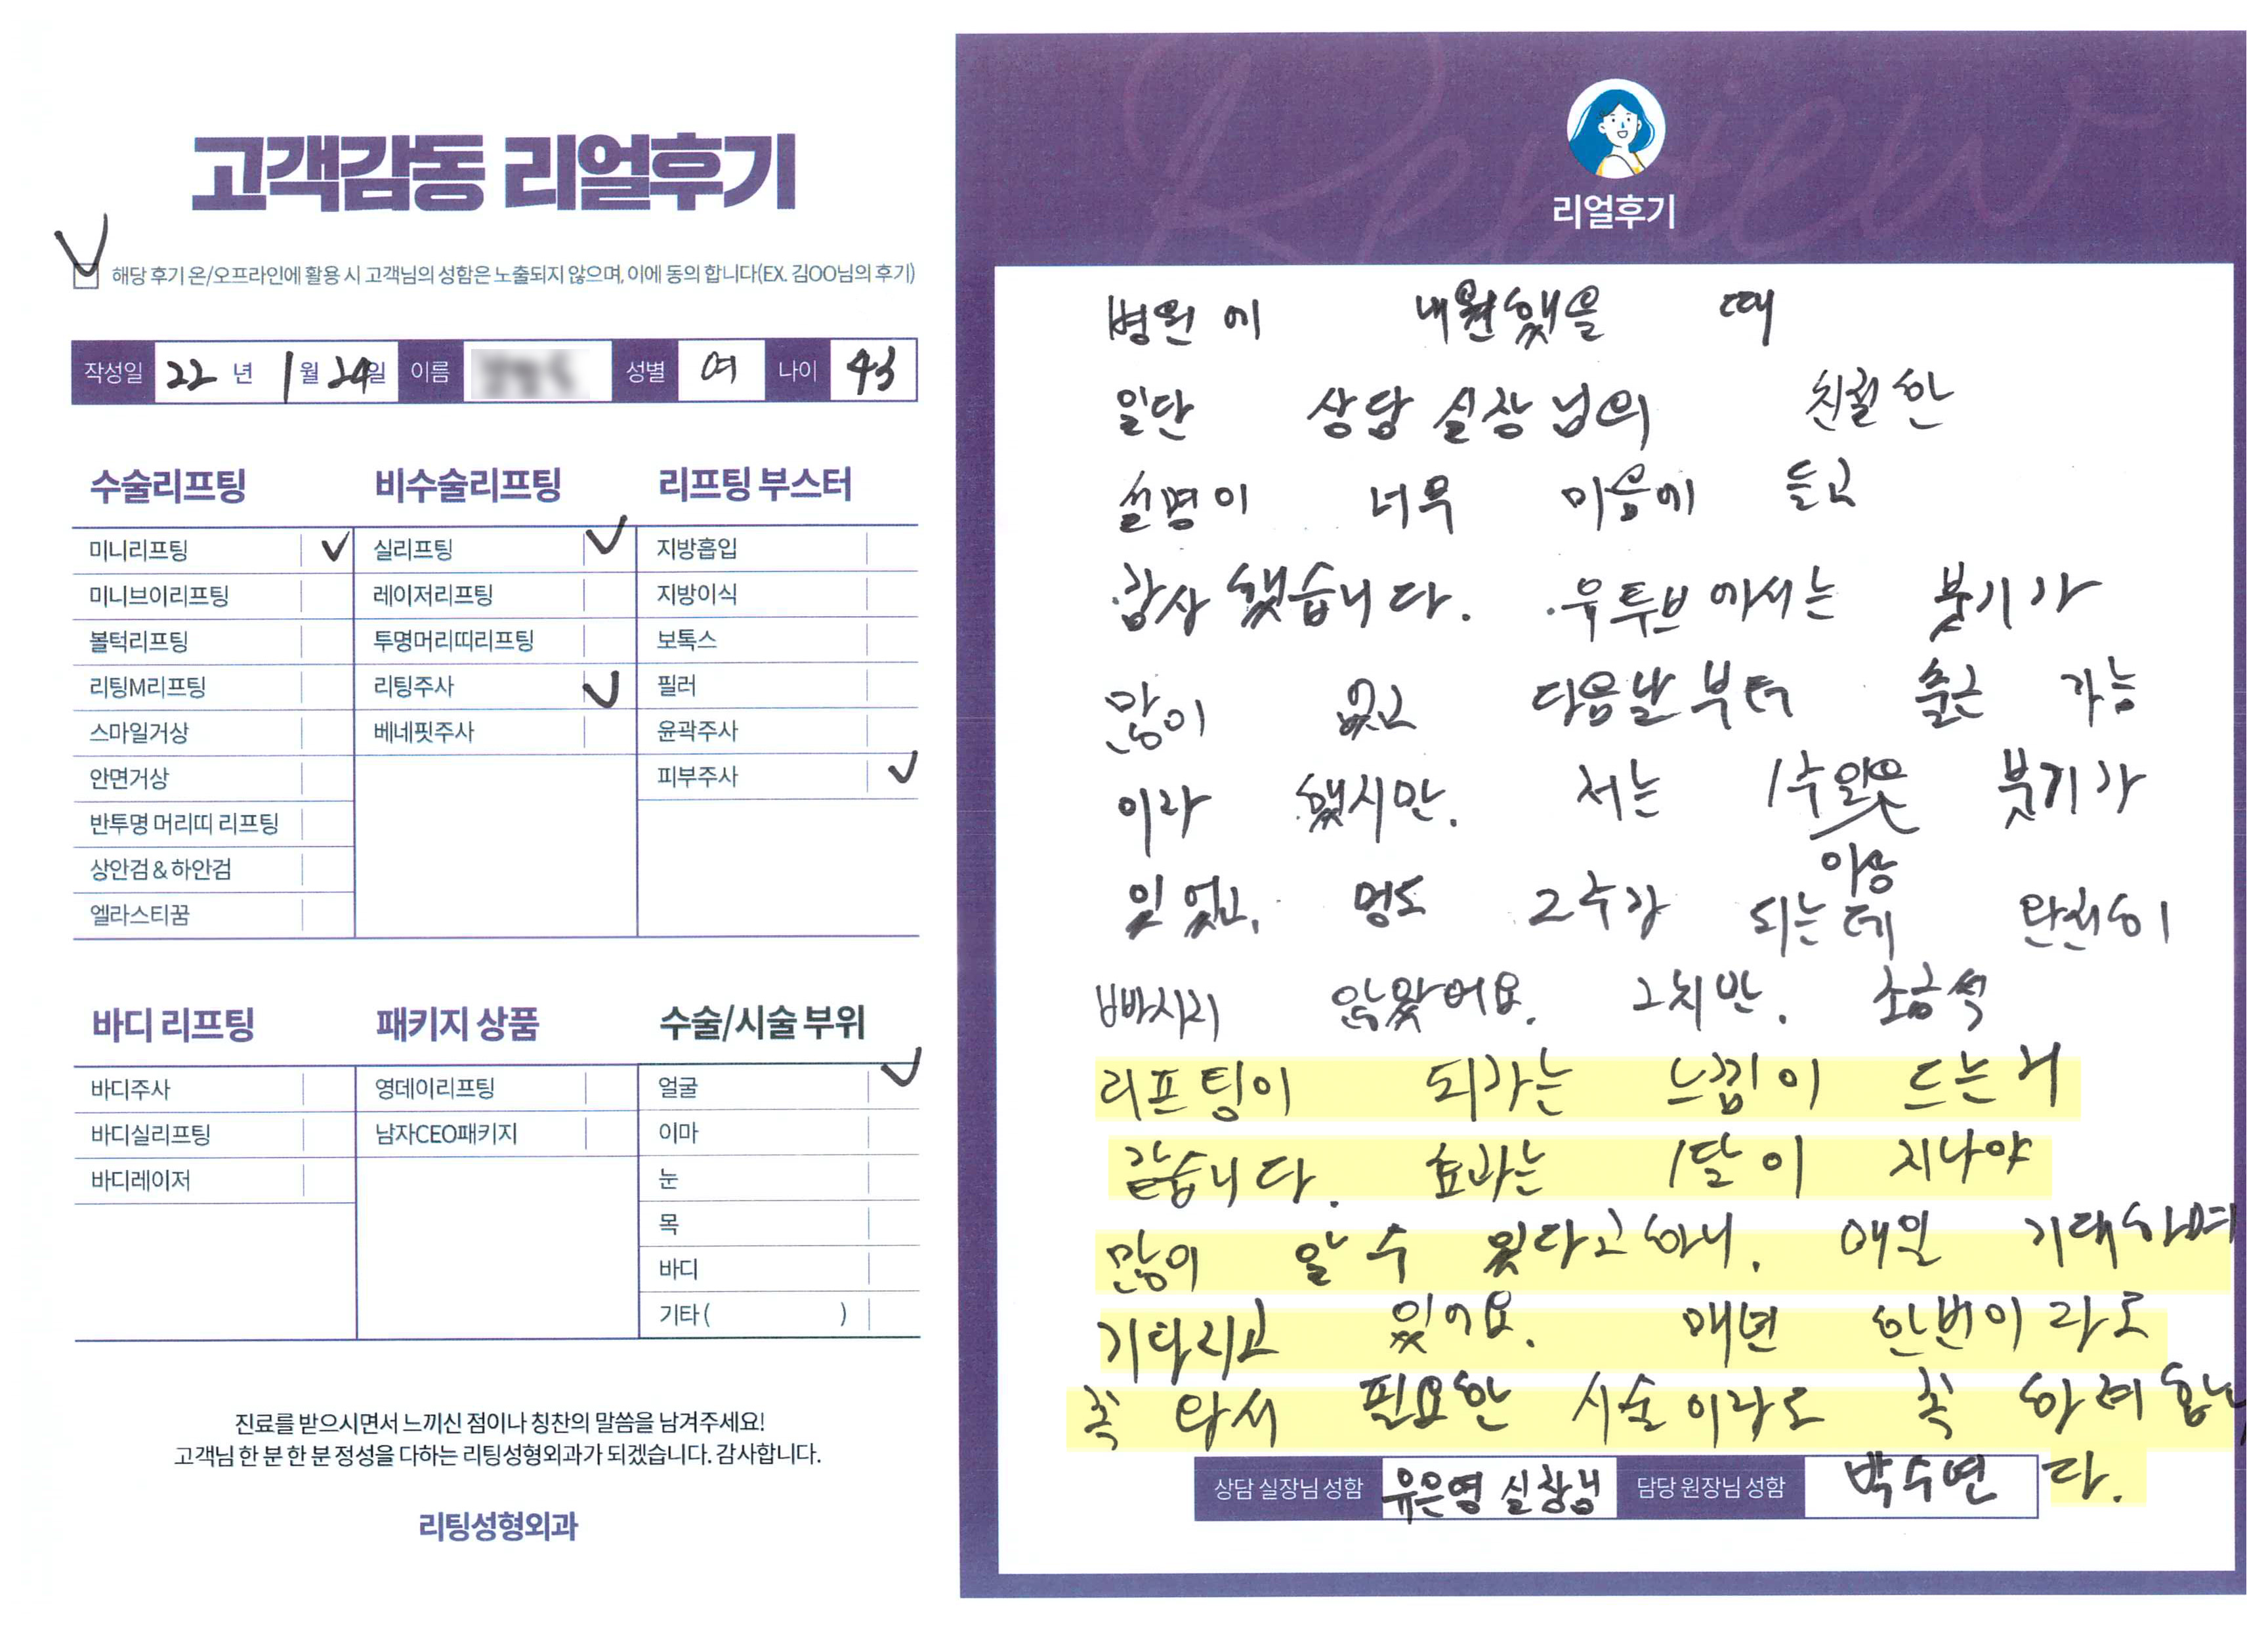 고객감동 리얼후기
해당 후기 온/오프라인에 활용 시 고객님의 성함은 노출되지 않으며, 이에 동의 합니다(EX. 김OO님의 후기)
작성일 22 년 1 월 24 일 이름 성별 여 나이 43
수술리프팅
미니리프팅
미니브이리프팅
볼턱리프팅
리팅M리프팅
스마일거상
안면거상
반투명 머리띠 리프팅
상안검 & 하안검
엘라스티꿈
비수술리프팅
실리프팅
레이저리프팅
투명머리띠리프팅
리팅주사
베네핏주사
리프팅 부스터
지방흡입
지방이식
보톡스
필러
윤곽주사
피부주사
바디 리프팅
바디주사
바디실리프팅
바디레이저
패키지 상품
영데이리프팅
남자CEO패키지
수술/시술 부위
얼굴
이마
눈
목
바디
기타 ( )
진료를 받으시면서 느끼신 점이나 칭찬의 말씀을 남겨주세요!
고객님 한 분 한 분 정성을 다하는 리팅성형외과가 되겠습니다. 감사합니다.
리팅성형외과
Review
리얼후기
병원에 내원했을 때
일단 상담실장님의 친절한
설명이 너무 마음에 들고
감사했습니다. 유투브에서는 붓기가
많이 없고 다음날부터 출근 가능
이라 했지만. 저는 1주 붓기가
이상
있었고, 멍도 2주가 되는데 완전히
빠지지 않았어요. 그치만. 조금씩
리프팅이 되가는 느낌이 드는거
같습니다. 효과는 1달이 지나야
많이 알 수 있다고하니. 매일 기대하며
기다리고 있어요. 매년 한번이라도
꼭 와서 필요한 시술이라도 꼭 하려 합니
다.
상담 실장님 성함 유은영 실장님 담당 원장님 성함 박수연